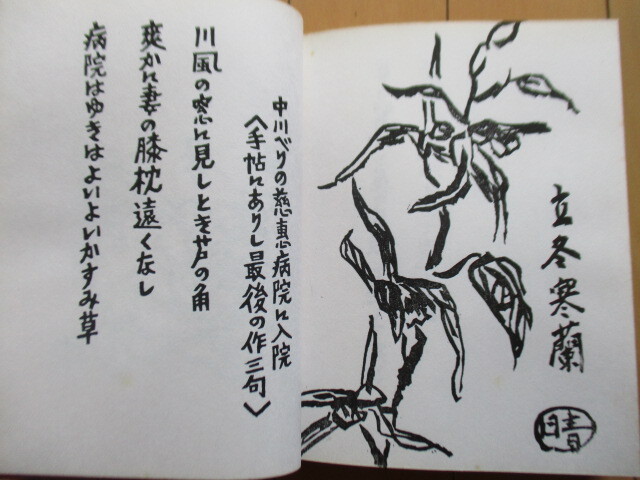 立冬寒蘭
晴
中川べりの慈惠病院に入院
〈手帖にありし最後の作三句〉
川風の窓に見しとき芦の角
爽かに妻の膝枕遠くなし
病院はゆきはよいよいかすみ草